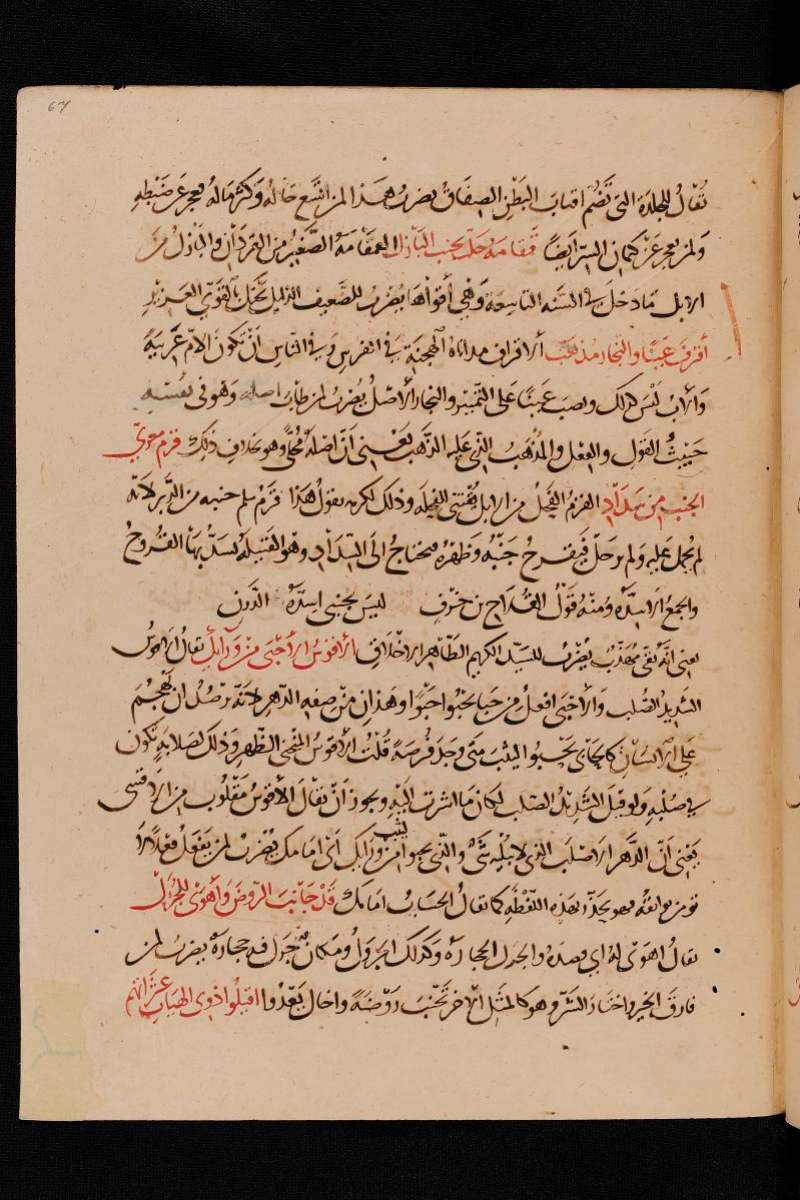 67
يقال للجلدة التى تضم اقتاب البطن الصفاق يضرب هذا لمن اتسع حاله وكثر ماله فعجز عن ضبطه
ولمن يعجز عن كتمان السر ايضًا قمقامة حلّ بجنب البازل القمقامة الصغير من القردان والبازل من
الابل ما دخل فى السنه التاسعة وهى أقواها يضرب للضعيف الذليل يحتك بالقوى العزيز
أقرف عينًا والنجار مذهب الاقراف مداناة الهجنة فى الفرس وفى الناس أن تكون الامّ عربية
والاب ليس كذلك ونصب عينًا على التمييز والنجار الأصل يضرب لمن طاب اصله وهو فى نفسه
خبيث القول والفعل والمذهب الذى عليه الذهب يعنى أن اصله محلى وهو بخلاف ذلك قرم معرى
الجنب من سداد القرم الفحل من الابل يقتنى للفحلة وذلك لكرمه يقول هذا قرم سلم جنبه من الدبر لانه
لم يحمل عليه ولم يرحل فيقرح جنبه وظهره فيحتاج الى السداد وهو الفتيلة ليسد بها القروح
والجمع الاسدّة ومنه قول القلاخ بن حزن ليس بجنبى اسدّة الدرن
يعنى انه نقى مهذب يضرب للسيد الكريم الطاهر الاخلاق الاقوس الأحبى من ورائك يقال الاقوس
الشديد الصلب والاحبى افعل من حبا يحبوا حبوًا وهذان من صفه الدهر لانه يرصد ان يهجم
على الانسان كالحابى يحبوا ليثب متى وجد فرصة قلت الاقوس المنحنى الظهر وذلك لصلابة تكون
فى صلبه ولو قيل الشديد الصلب لكان ما اشرت اليه ويجوز أن يقال الأقوس مقلوب من الاقسى
يعنى أن الدهر الاصلب الذى لا يبليه شىء والذى يحبوا ليثب من ورائك اى امامك يضرب لمن يفعل فعلا لا
تؤمن بوائقه فهو يحذّر بهذه اللفظه كما يقال الحساب امامك قد جانب الروض وأهوى للجرل
يقال اهوى له اى قصده والجرل الحجارة وكذلك الجرول ومكان جرل فيه حجارة يضرب لمن
فارق الخير واختار الشر وهو كالمثل الآخر تجنب روضة واحال يعدوا اقيلوا ذوى الهيات عثراتهم